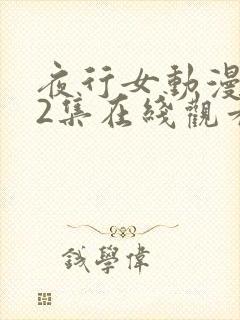 夜行女動漫
2集在綫觀看
錢學偉